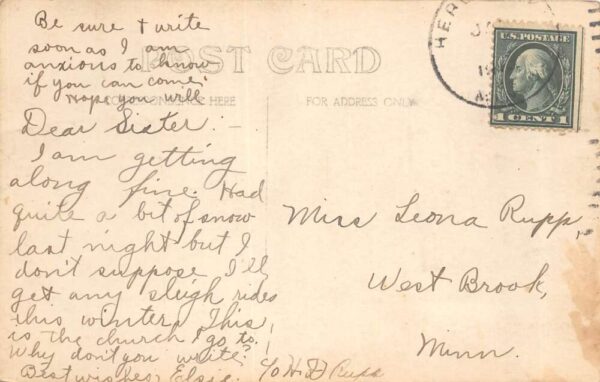 Be sure + write
soon as I am
anxious to know
if you can come.
Hope you will
POST CARD
HERE
FOR ADDRESS ONLY
Dear Sister:-
I am getting
along fine. Had
quite a bit of snow
last night but I
don't suppose I'll
get any sleigh rides
this winter. This
is the church I go to.
Why don't you write?
Best wishes, Elsie.
c/o H F Rupp
HER
U.S. POSTAGE
1 CENT 1
Miss Leona Rupp,
West Brook,
Minn.